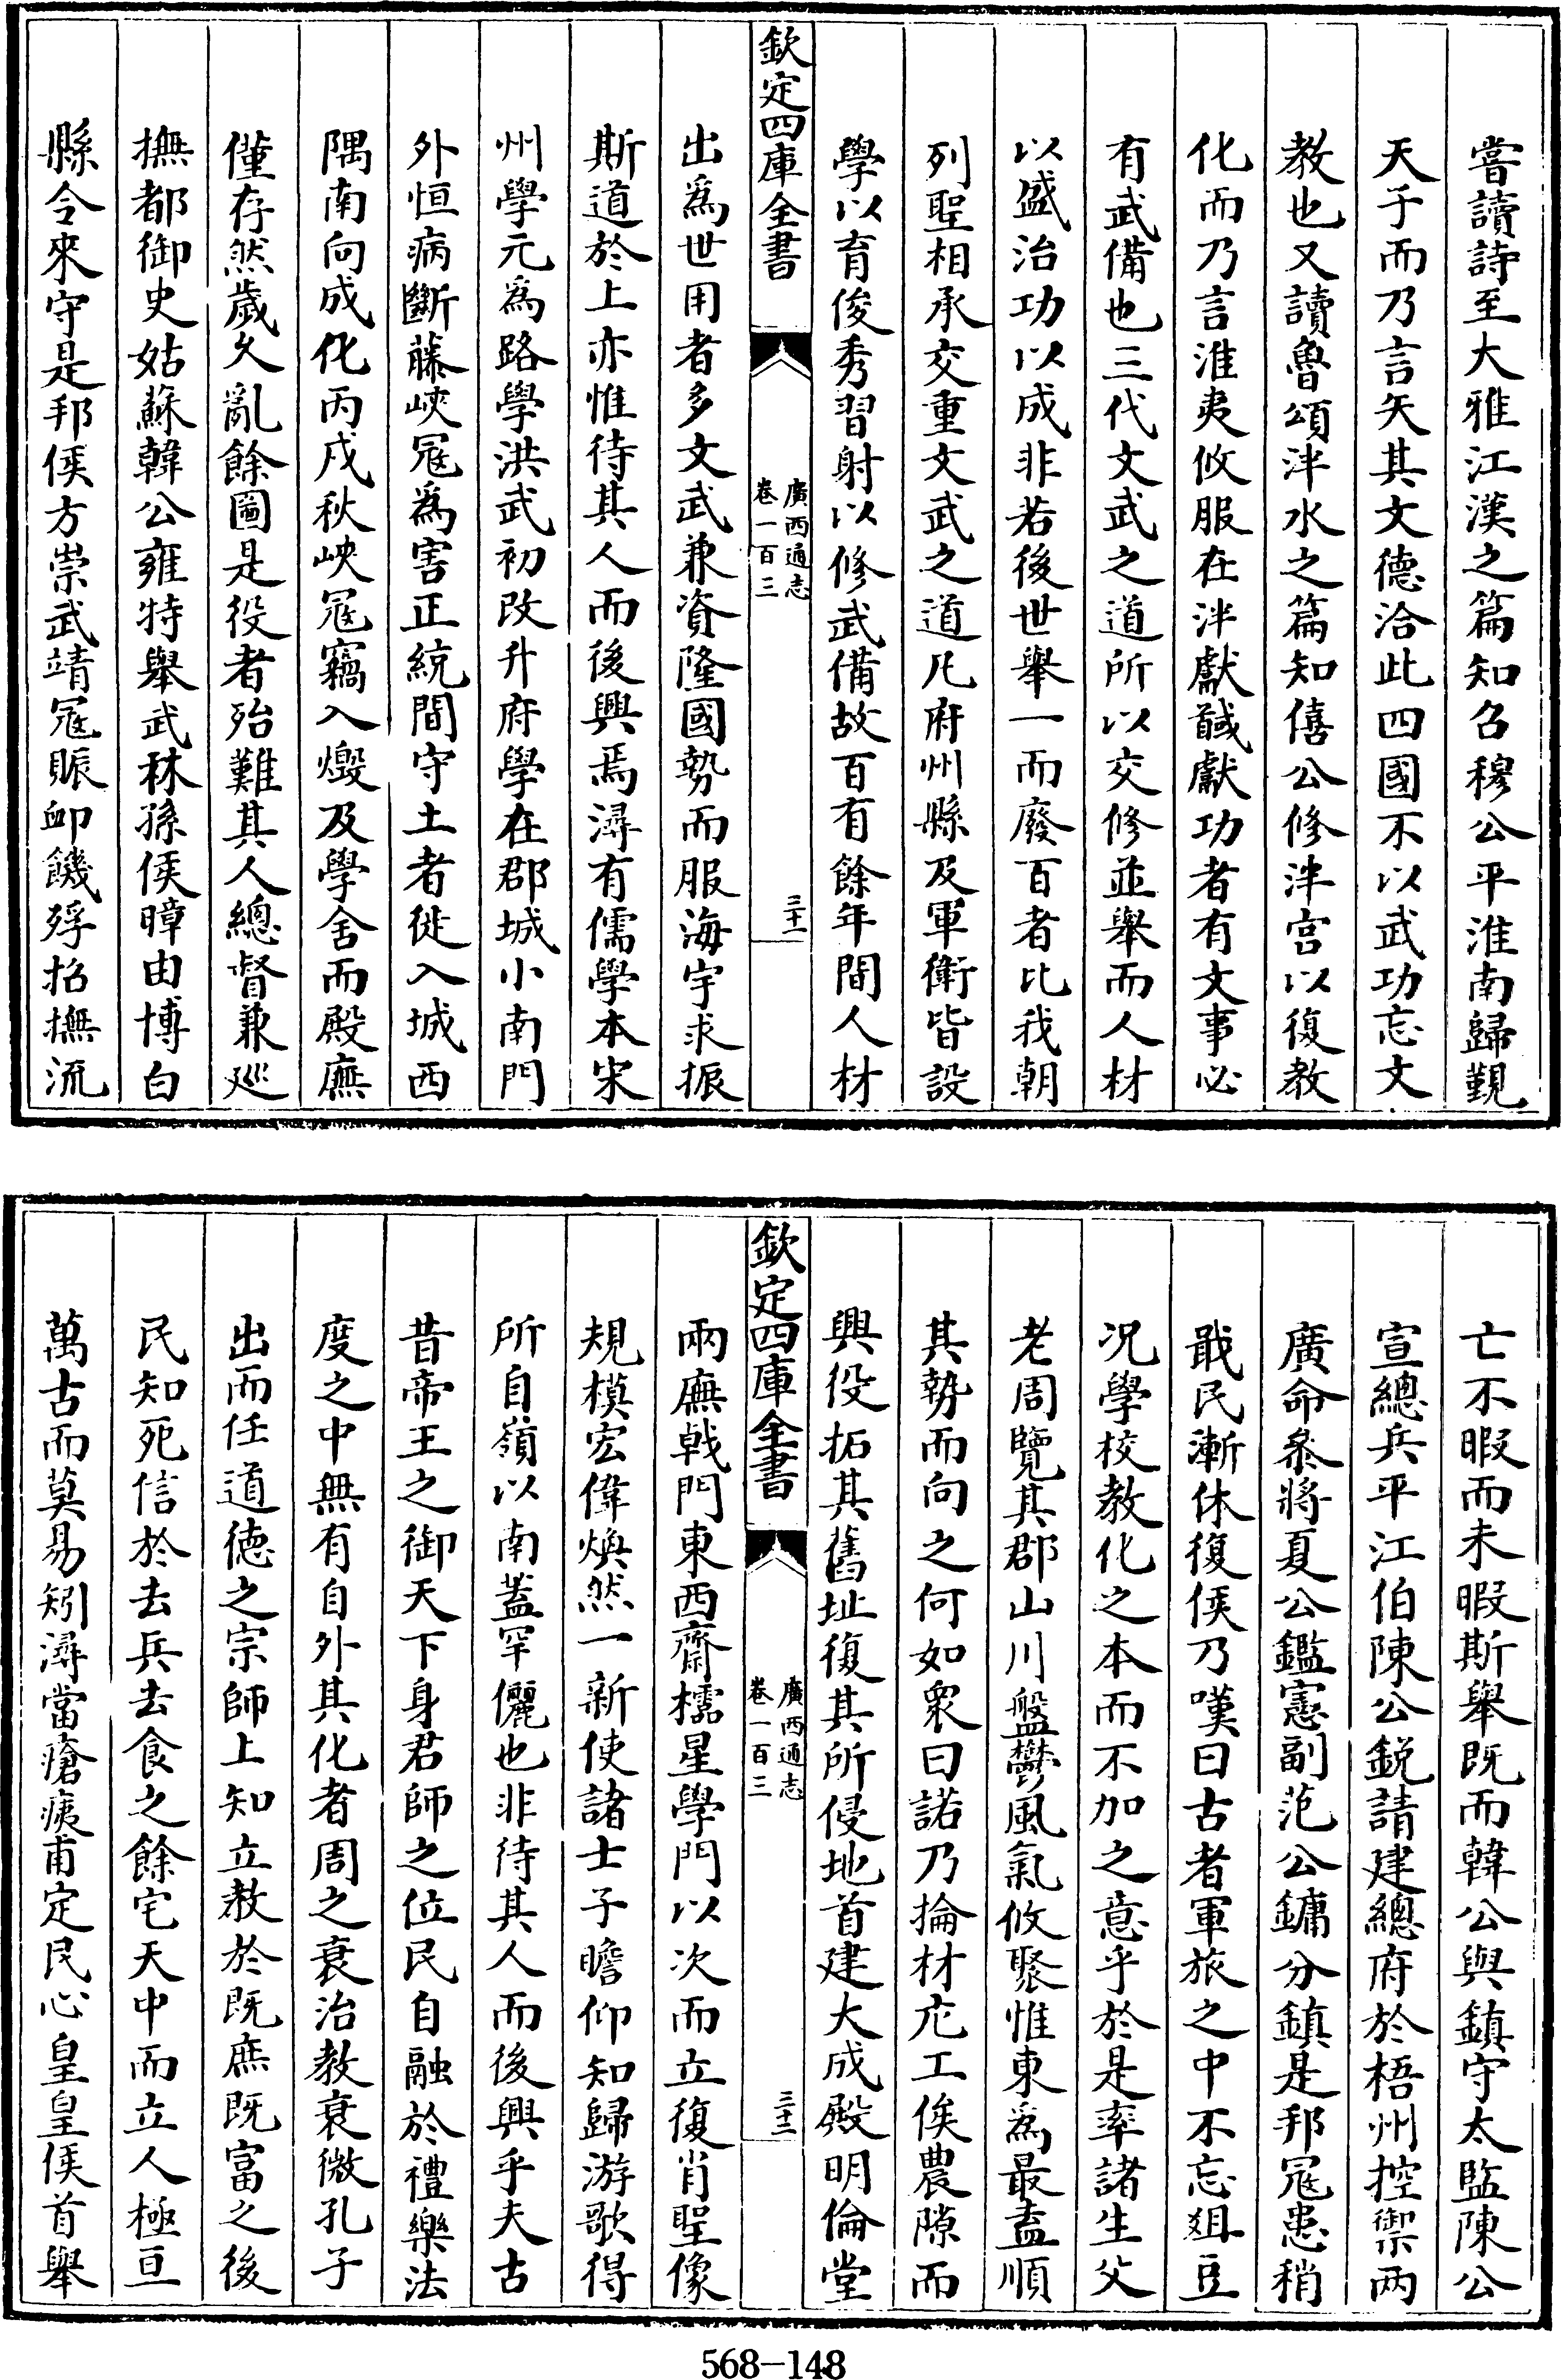 嘗讀詩至大雅江漢之篇知召穆公平淮南歸覲
天子而乃言矢其文德洽此四國不以武功忘文
教也又讀魯頌泮水之篇知僖公修泮宫以復教
化而乃言淮夷攸服在泮獻馘獻功者有文事必
有武備也三代文武之道所以交修並舉而人材
以盛治功以成非若後世舉一而廢百者比我朝
列聖相承交重文武之道凡府州縣及軍衛皆設
學以育俊秀習射以修武備故百有餘年間人材
欽定四庫全書
廣西通志
卷一百三
三十一
出爲世用者多文武兼資隆國勢而服海宇求振
斯道於上亦惟待其人而後興焉潯有儒學本宋
州學元爲路學洪武初改升府學在郡城小南門
外恒病斷藤峽冦爲害正統間守土者徙入城西
隅南向成化丙戌秋峽冦竊入燬及學舍而殿廡
僅存然歲久亂餘圖是役者殆難其人總督兼廵
撫都御史姑蘇韓公雍特舉武林孫侯暲由博白
縣令來守是邦侯方崇武靖冦賑卹饑殍招撫流
亡不暇而未暇斯舉既而韓公與鎮守太監陳公
宣總兵平江伯陳公鋭請建總府於梧州控禦兩
廣命叅將夏公鑑憲副范公鏞分鎮是邦冦患稍
戢民漸休復侯乃嘆曰古者軍旅之中不忘俎豆
况學校教化之本而不加之意乎於是率諸生父
老周覽其郡山川盤欝風氣攸聚惟東爲最盍順
其勢而向之何如衆曰諾乃掄材庀工俟農隙而
興役拓其舊址復其所侵地首建大成殿明倫堂
欽定四庫全書
廣西通志
卷一百三
三十二
兩廡戟門東西齋櫺星學門以次而立復肖聖像
規模宏偉煥然一新使諸士子瞻仰知歸游歌得
所自嶺以南蓋罕儷也非待其人而後興乎夫古
昔帝王之御天下身君師之位民自融於禮樂法
度之中無有自外其化者周之衰治教衰微孔子
出而任道德之宗師上知立教於既庶既富之後
民知死信於去兵去食之餘宅天中而立人極亘
萬古而莫易矧潯當瘡痍甫定民心皇皇侯首舉
568-148